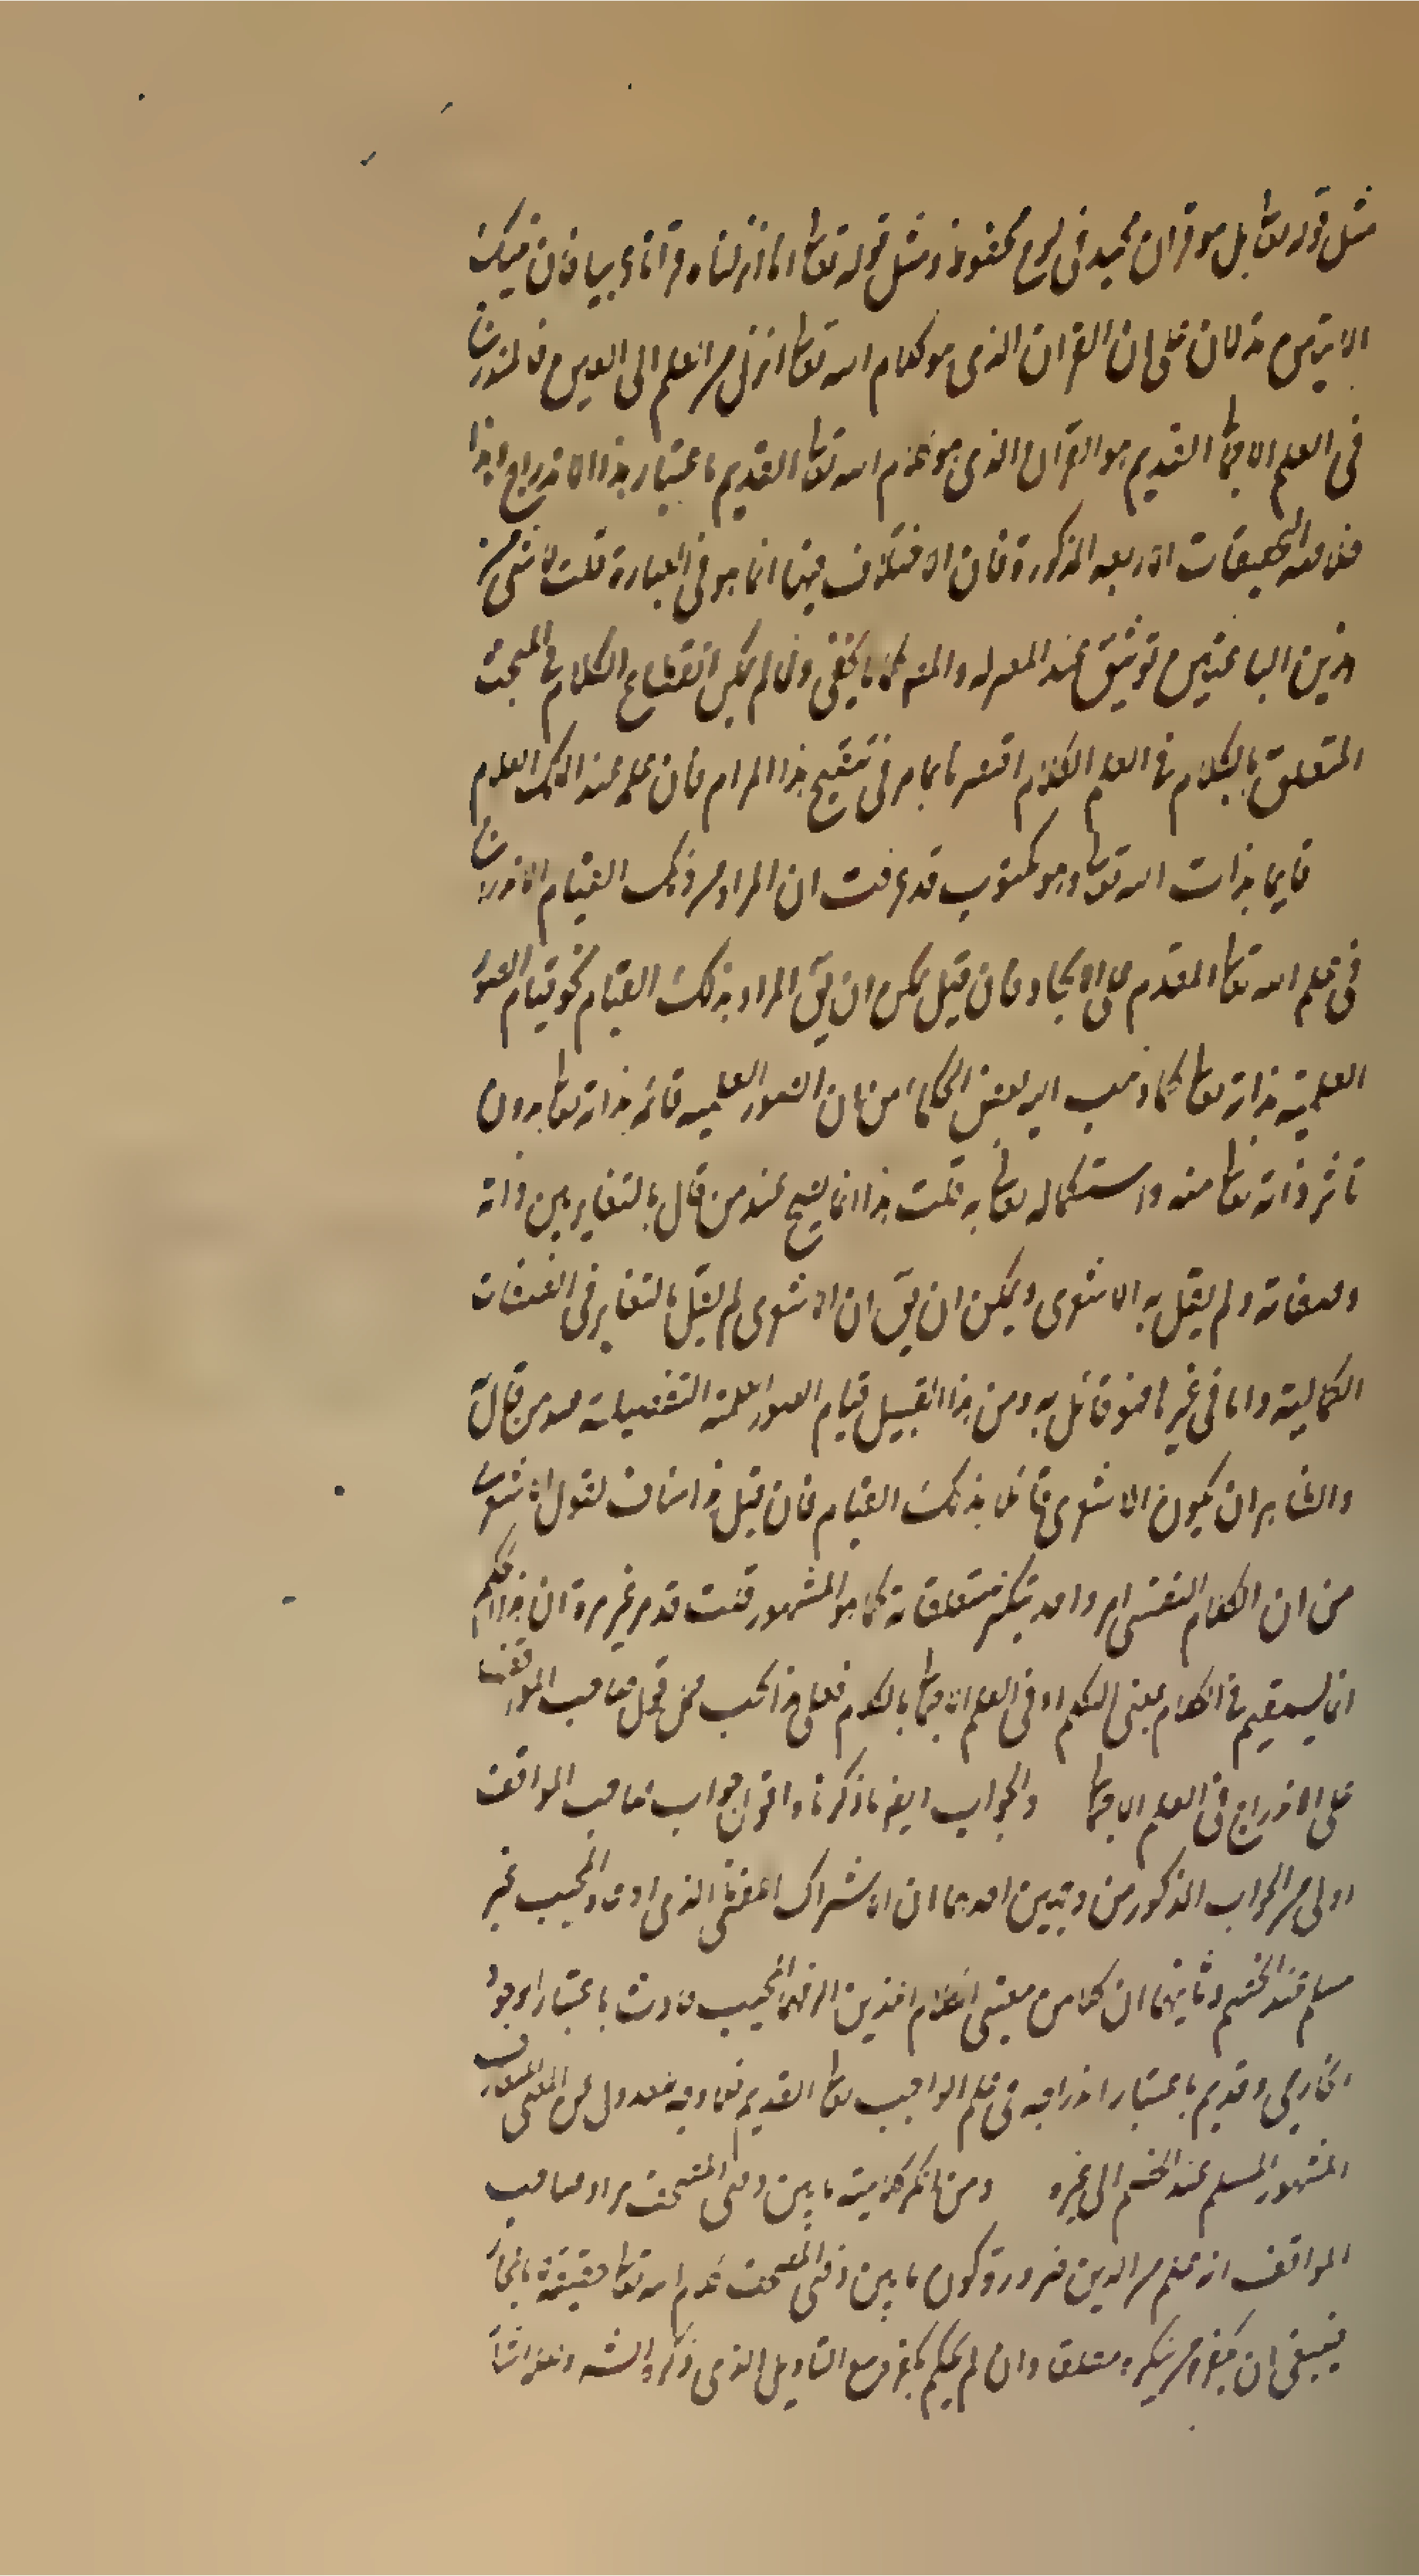 مثل قوله تعا بل هو قران مجيد فى لوح محفوظ ومثل قوله تعا انا انزلناه قرآنا عربيا فان تينك
الايتين تدلان على ان القران الذى هو كلام الله تعا انزل من العلم الى العين فالمندرج
فى العلم الاجما القديم هو القرآن الذى هو كلام الله تعا القديم باعتبار هذا الاندراج وهذا
خلاصة التحقيقات الاربعه المذكورة فان الاختلاف فيها انما هو فى العبارة قلت لا شئ من
هذين الباعثين توثيق عند المعتزله كما لا يخفى ولما لم يكن انقطاع الكلام فى المبحث
المتعلق بالكلام فى العلم الكلام اقتصرنا بما مر فى تنقيح هذا المرام فان علمه عند الملك العلام
قايما بذات الله تعا وهو مكتوب قد عرفت ان المراد من ذلك القيام الاندراج
فى علم الله تعا المقدم على الايجاد فان قيل يمكن ان يق المراد بذلك القيام نحو قيام الصور
العلمية بذاته تعا كما ذهب اليه بعض الحكماء من ان الصور العلميه قائمة بذاته تعا بدون
تاثر ذاته تعا منه واستكماله تعا به قلت هذا انما يصح عند من قال بالتغاير بين ذاته
وصفاته ولم يقل به الاشعرى ويمكن ان يق ان الاشعرى لم يقل بالتغاير فى الصفات
الكمالية واما فى غيرها فهو قائل به ومن هذا القبيل قيام الصور العلمية التفصيلية عند من قال
والظاهر ان يكون الاشعرى قائلا بذلك القيام فان قيل هذا مناف لقول الاشعرى
من ان الكلام النفسى امر واحد يتكثر متعلقاته كما هو المشهور قلت قد مر غير مرة ان هذا الحكم
انما يستقيم فى الكلام بمعنى التكلم او فى العلم الاجما بالكلام فعلى هذا يجب حمل صاحب المواقف
على الاندراج فى العلم الاجما والجواب ايضا ما ذكرنا واقران جواب صاحب المواقف
اولى من الجواب المذكور من وجهين احدهما ان الاشتراك اللفظى الذى ادعاه المجيب غير
مسلم عند الخصم وثانيهما ان كلا من معنيى الكلام اللذين المجيب حادث باعتبار الوجود
الخارجى وقديم باعتبار اندراجه فى علم الواجب تعا القديم فلا وجه للعدول عن المعنى المتعارف
المشهور المسلم عند الخصم الى غيره ومن انكر كلامية ما بين دفتى المصحف مراد صاحب
المواقف انه علم من الدين ضرورة كون ما بين دفتى المصحف كلام الله تعا حقيقة
فينبغى ان يكفر من ينكره مطلقا وان لم يحكم بكفره مع التاويل الذى ذكره